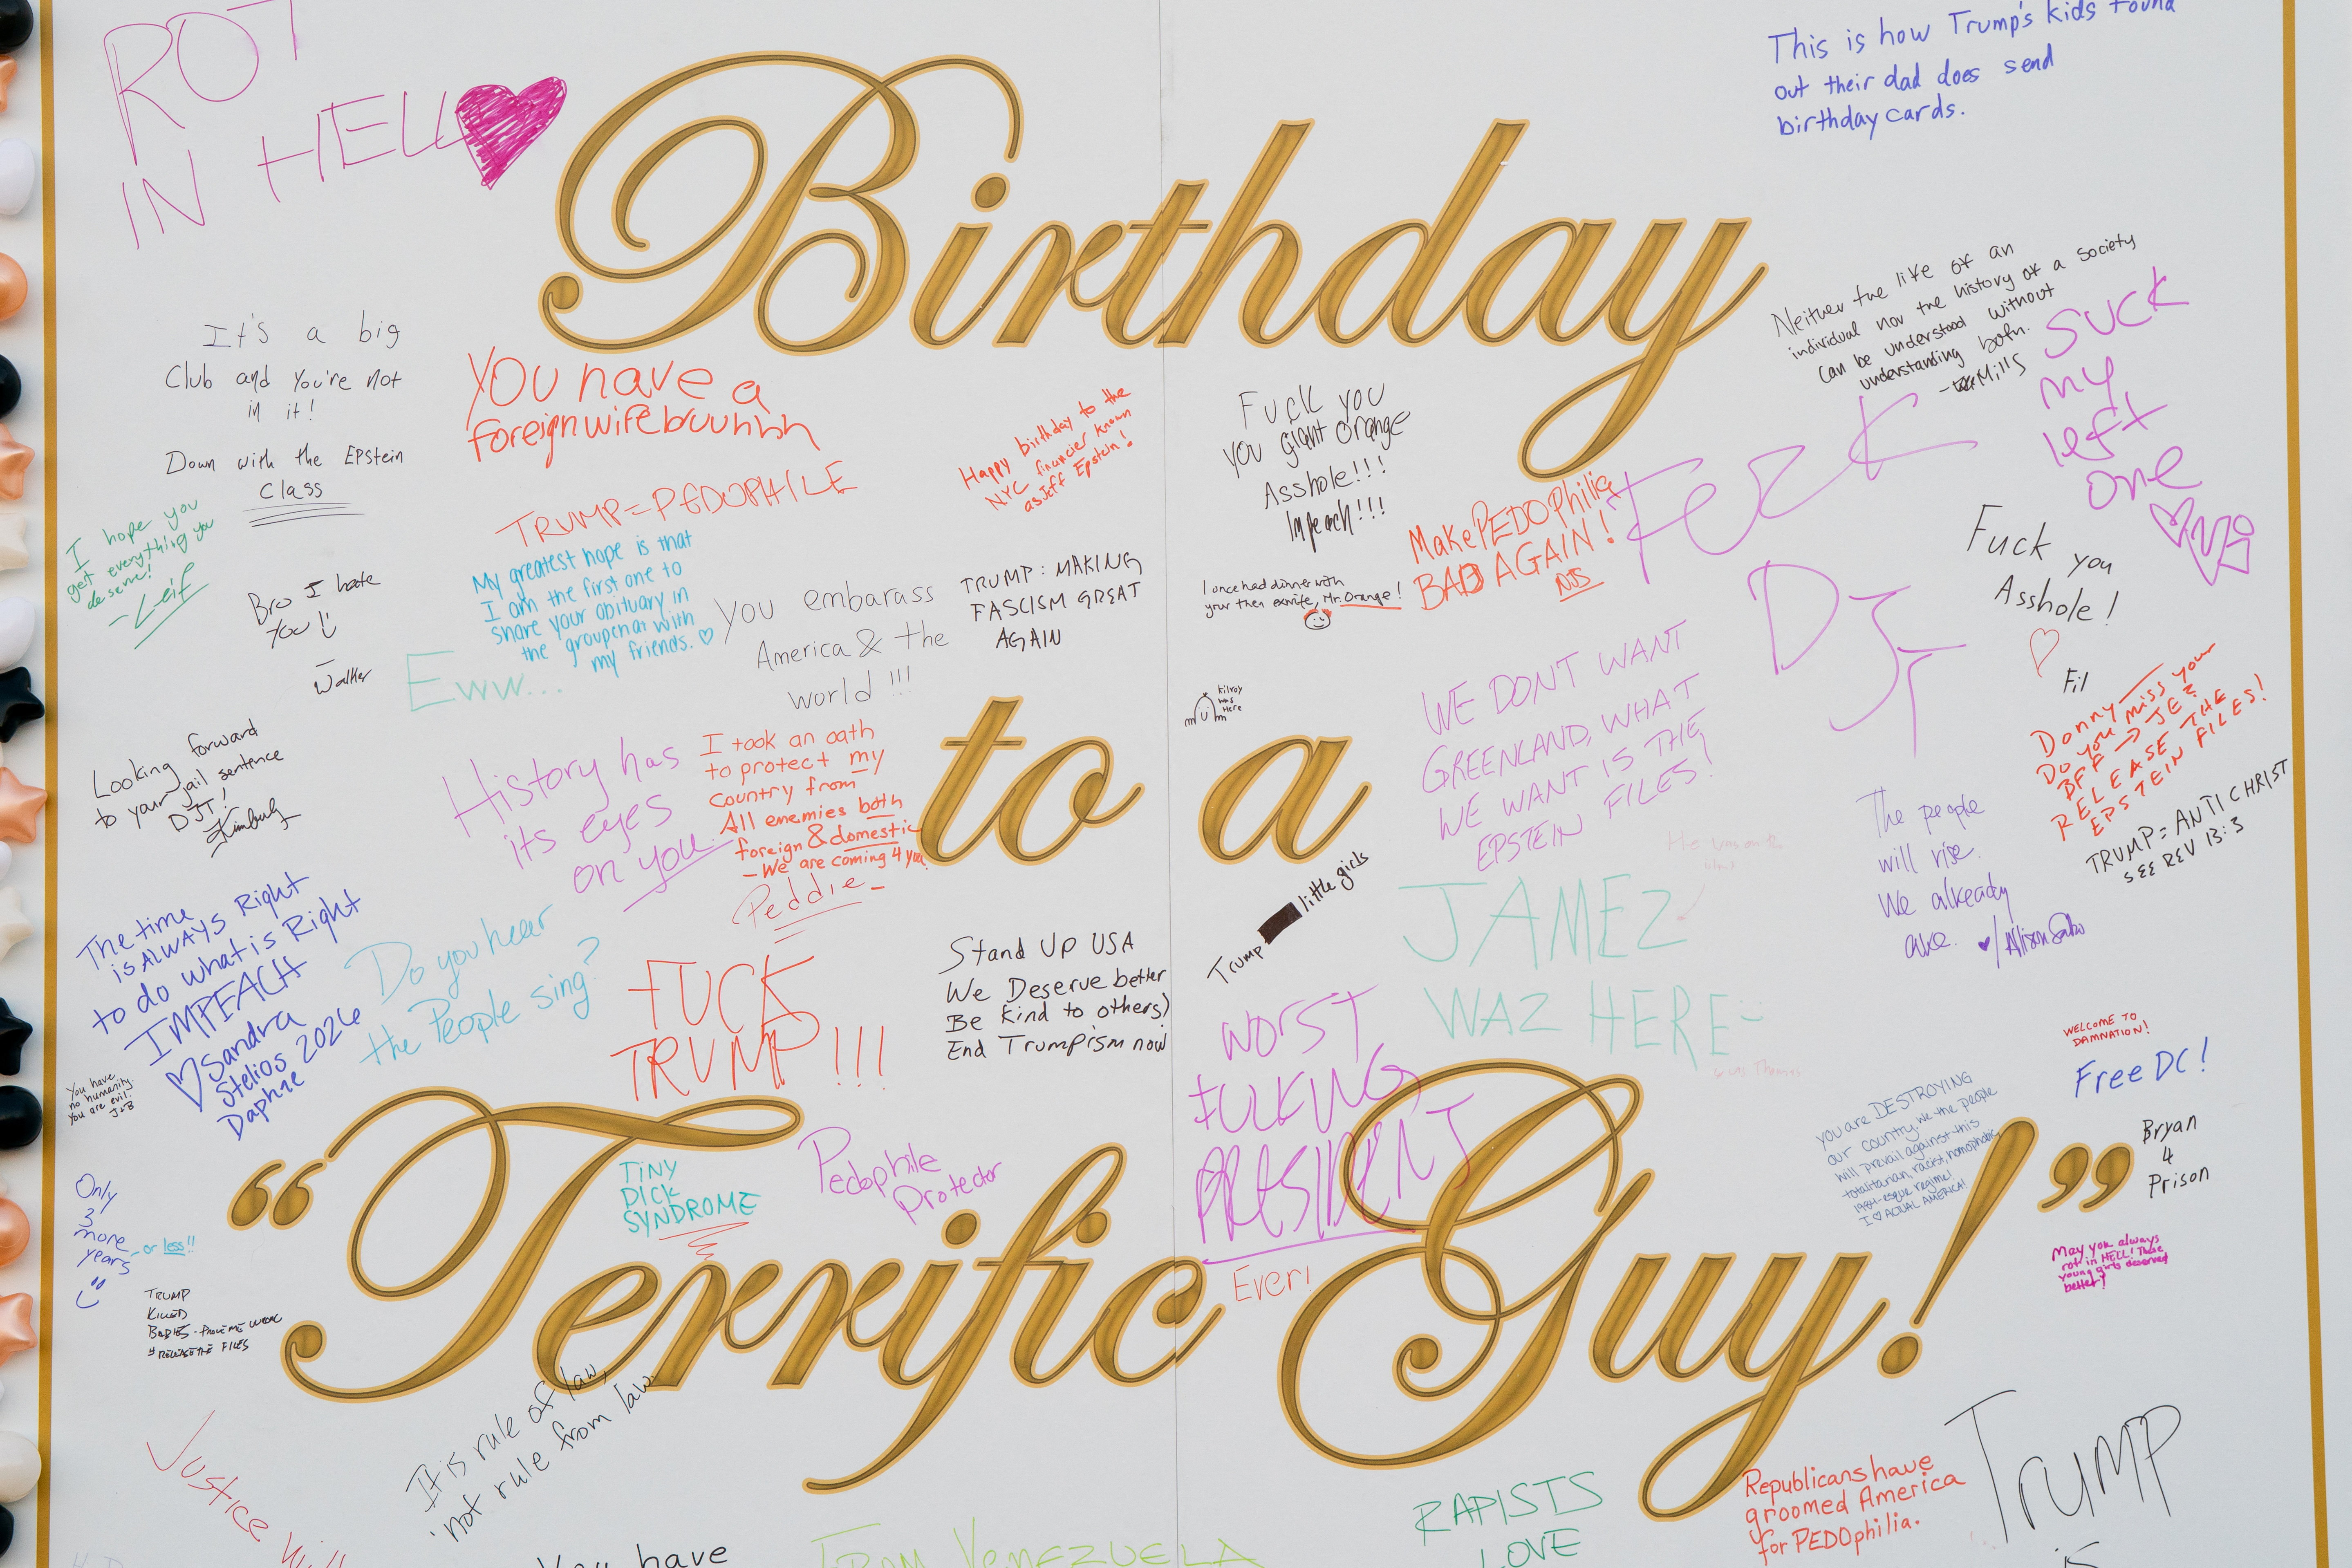 ROT
IN HELL
This is how Trump's kids found
out their dad does send
birthday cards.
Birthday
Neither the life of an
individual nor the history of a society
can be understood without
understanding both.
- Mills
SUCK
my
left
one
It's a big
Club and you're not
in it!
Down with the Epstein
Class
YOU have a
foreign wife bruuhhh
Happy birthday to the
NYC financier known
as Jeff Epstein!
Fuck you
you giant orange
Asshole!!!
Impeach!!!
TRUMP = PEDOPHILE
Make PEDOPhilia
BAD AGAIN!
NJS
DJT
Fuck you
Asshole!
Fil
I hope you
get everything you
deserve!
- Leif
Bro I hate
you
- Walker
Eww...
My greatest hope is that
I am the first one to
share your obituary in
the groupchat with
my friends.
you embarass
America & the
world!!!
TRUMP: MAKING
FASCISM GREAT
AGAIN
I once had dinner with
your then exwife, Mr. Orange!
Kilroy
was
Here
WE DONT WANT
GREENLAND, WHAT
WE WANT IS THE
EPSTEIN FILES!
Donny -
Do you miss your
BFF → JE?
RELEASE THE
EPSTEIN FILES!
TRUMP = ANTICHRIST
SEE REV 13:3
Looking forward
to your jail sentence
DJT!
History has
its eyes
on you.
I took an oath
to protect my
country from
All enemies both
foreign & domestic
- We are coming 4 you!
Peddie -
to a
Trump
little girls
The people
will rise.
We already
are.
JAMEZ
WAZ HERE
The time
is ALWAYS Right
to do what is Right
IMPEACH
Sandra
Stelios 2026
Daphne
Do you hear
the People sing?
FUCK
TRUMP!!!
Stand Up USA
We Deserve better
Be kind to others)
End Trumpism now
WORST
FUCKING
PRESIDENT
Ever!
WELCOME TO
DAMNATION!
Free DC!
Bryan
4
Prison
You have
no humanity.
You are evil.
J+B
you are DESTROYING
our country. We the people
will prevail against this
totalitarian, racist, homophobic,
1984-esque regime!
I ♡ ACTUAL AMERICA!
Only
3
more
years
- or less!!
TINY
DICK
SYNDROME
Pedophile
Protector
"Terrific Guy!"
May you always
rot in HELL! These
young girls deserved
better!
TRUMP
KILLED
BABIES - PROVE ME WRONG
# RELEASE THE FILES
It is rule of law,
not rule from law.
Justice will
You have
IRAN VENEZUELA
RAPISTS
LOVE
Republicans have
groomed America
for PEDOphilia.
Trump
is